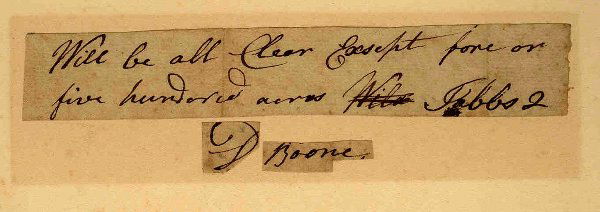 Will be all Clear Exsept fore or
five hundored acres Wila Tabbs 2
D Boone.